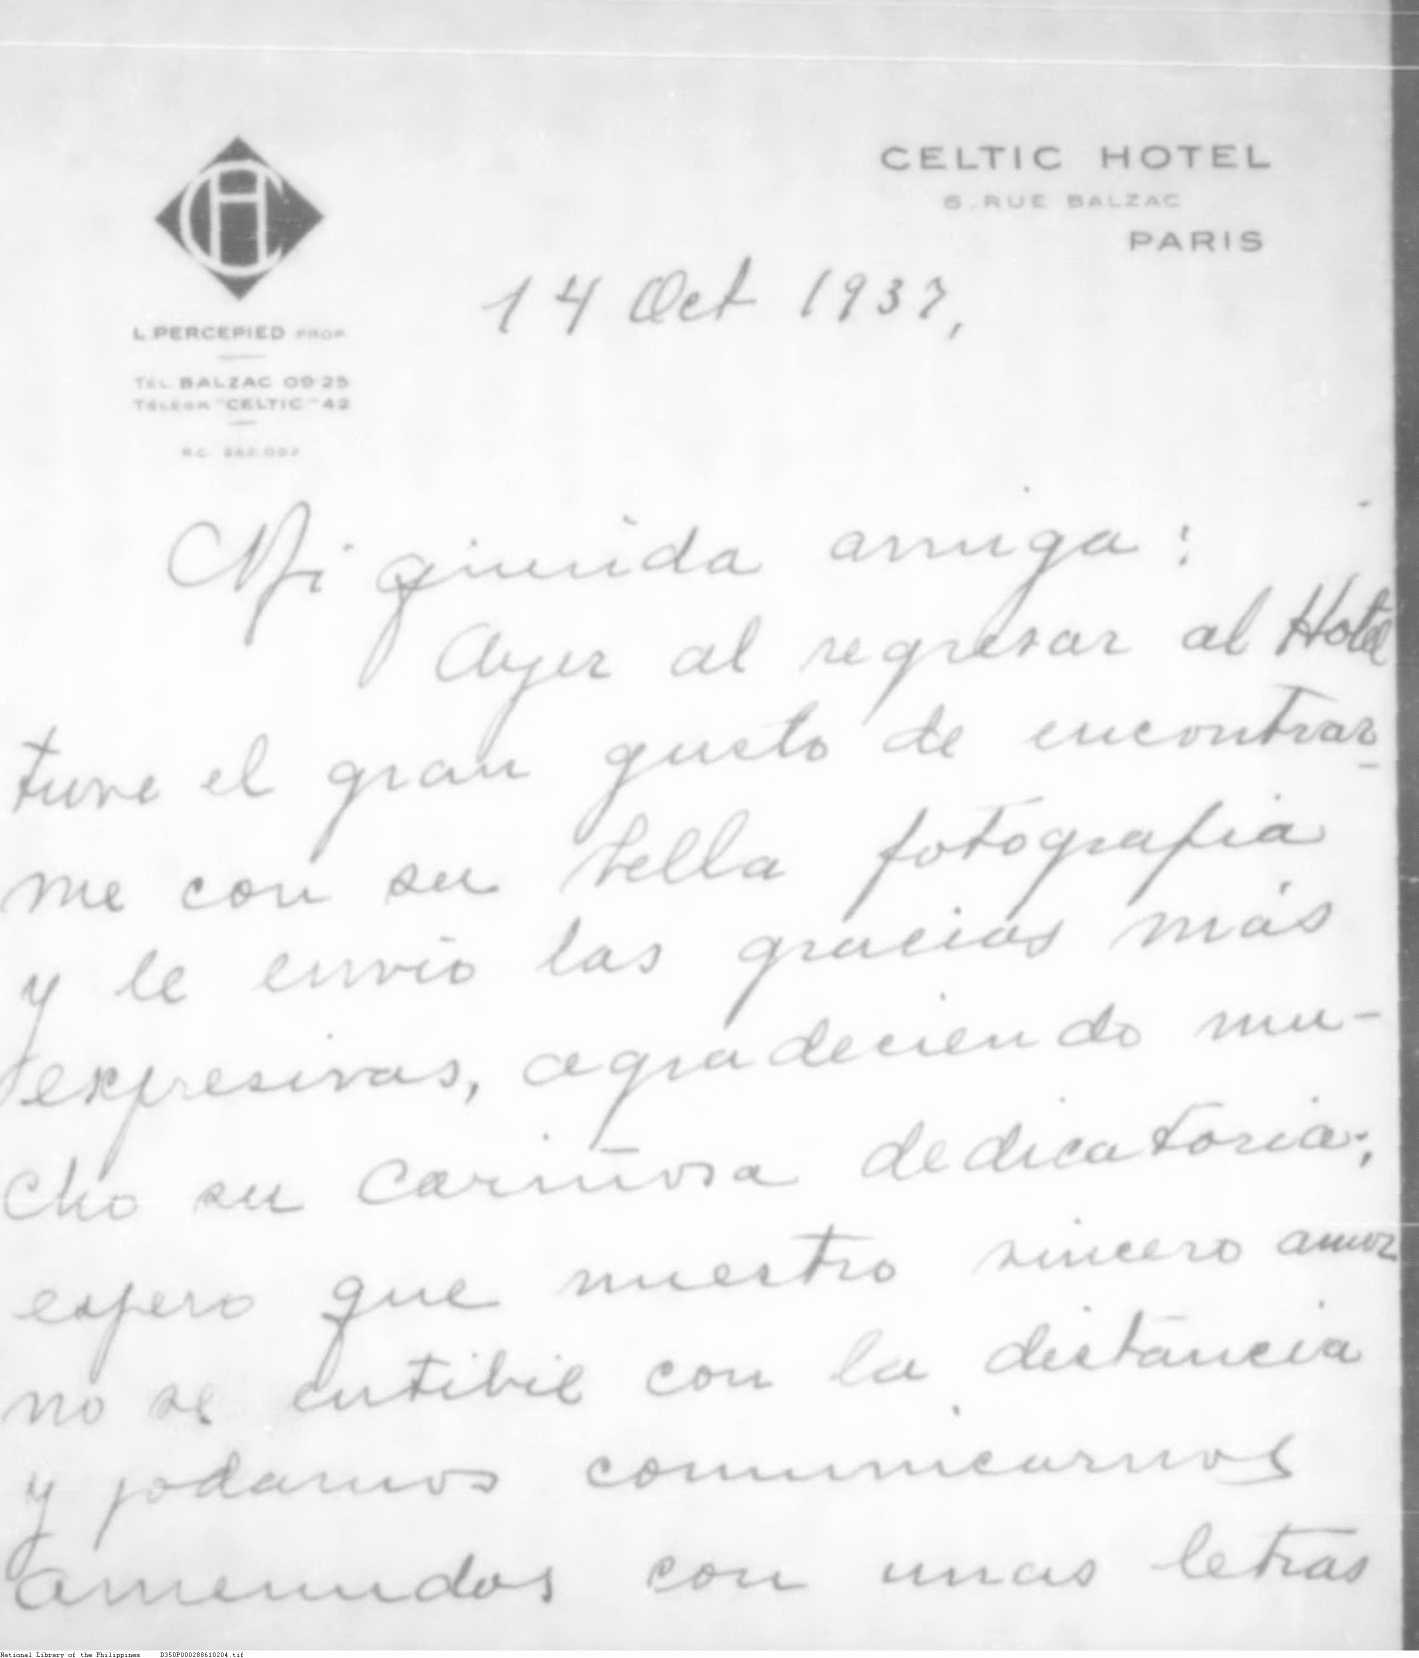 CELTIC HOTEL
6. RUE BALZAC
PARIS
CH
L. PERCEPIED PROP.
TÉL. BALZAC 09-25
TÉLÉGR. "CELTIC" 42
R.C.
14 Oct 1937,
Mi querida amiga:
Ayer al regresar al Hotel
tuve el gran gusto de encontrar
me con su bella fotografia
y le envio las gracias más
expresivas, agradeciendo mu-
cho su cariñosa dedicatoria;
espero que nuestro sincero amor
no se entibie con la distancia
y podamos comunicarnos
amenudos con unas letras
National Library of the Philippines D350P000288610204.tif